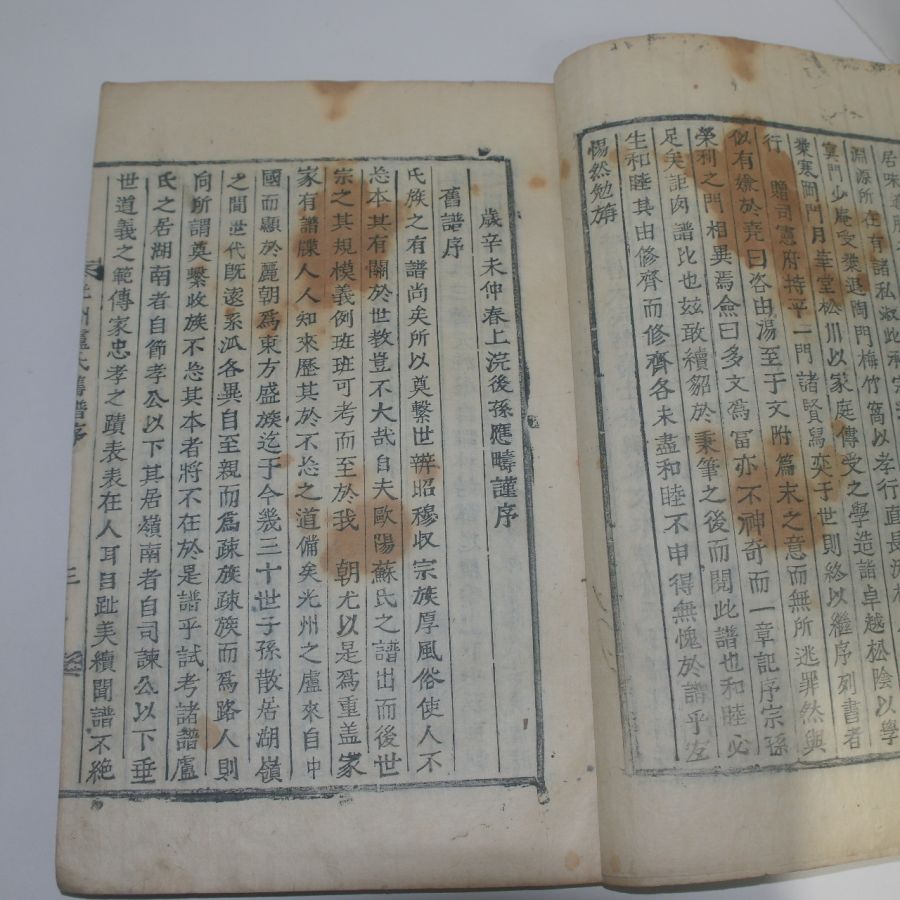 居
淵源所在有諸私淑此承
門少庵受業退陶門梅竹窩以孝行直長
業寒岡門月華堂松川以家庭傳受之學造詣卓越松陰以學
行　贈司憲府持平一門諸賢舄奕于世則終以繼序列書者
似有嫌於堯曰咨由湯至于文附篇末之意而無所逃罪然與
榮利之門相異焉僉曰多文爲富亦不神奇而一章記序宗孫
足矣詎囱譜比也玆敢續貂於秉筆之後而閱此譜也和睦必
生和睦其由修齊而修齊各未盡和睦不申得無愧於譜乎左
惕然勉旃
歲辛未仲春上浣後孫應疇謹序
舊譜序
氏族之有譜尚矣所以奠繫世辨昭穆収宗族厚風俗使人不
忘本其有關於世教豈不大哉自夫歐陽蘇氏之譜出而後世
宗之其規模義例班班可考而至於我　朝尤以是爲重盖家
家有譜牒人人知來歷其於不忘之道備矣光州之盧來自中
國而顯於麗朝爲東方盛族迄于今幾三十世子孫散居湖嶺
之間世代旣遠系泒各異自至親而爲疎族疎族而爲路人則
向所謂奠繫收族不忘其本者將不在於是譜乎試考諸譜盧
氏之居湖南者自節孝公以下其居嶺南者自司諫公以下垂
世道義之範傳家忠孝之蹟表表在人耳目趾美續聞譜不絶
光州盧氏舊譜序
三